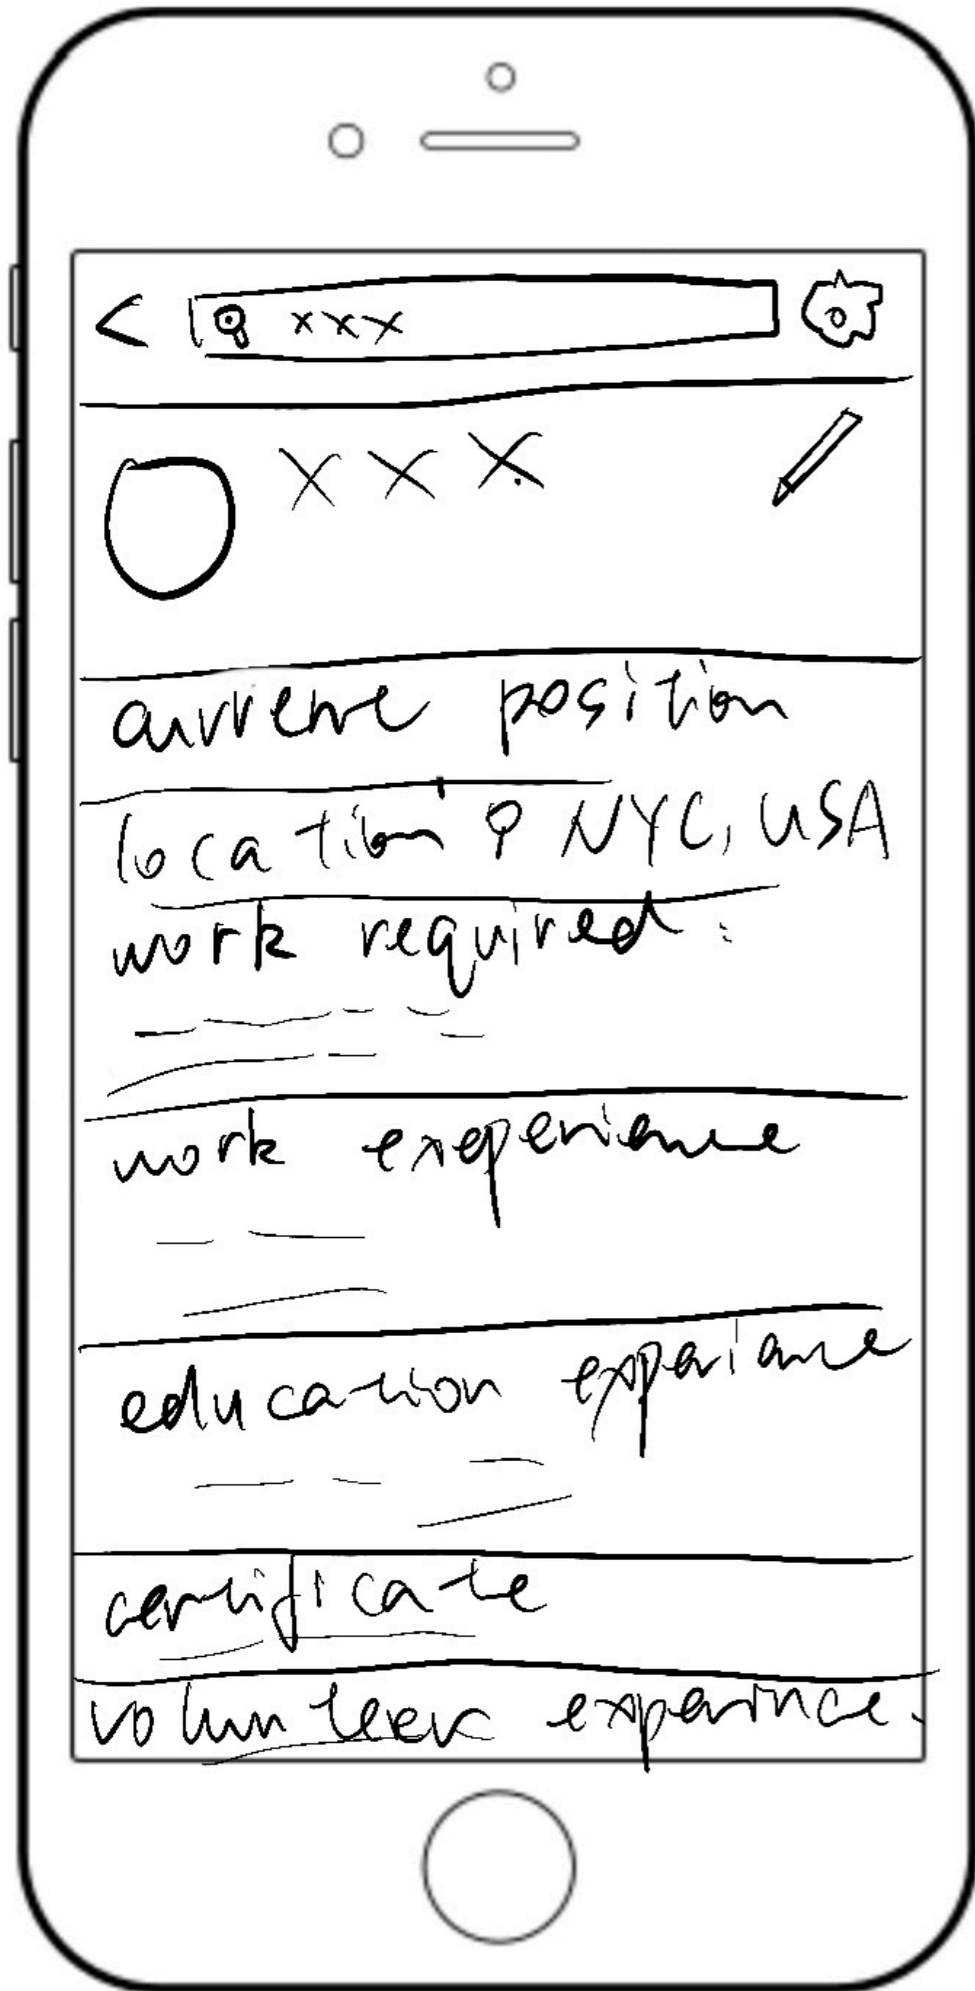 < xxx
XXX
current position
location NYC, USA
work required:
work exeperience
education experiance
certificate
volunteer experince.